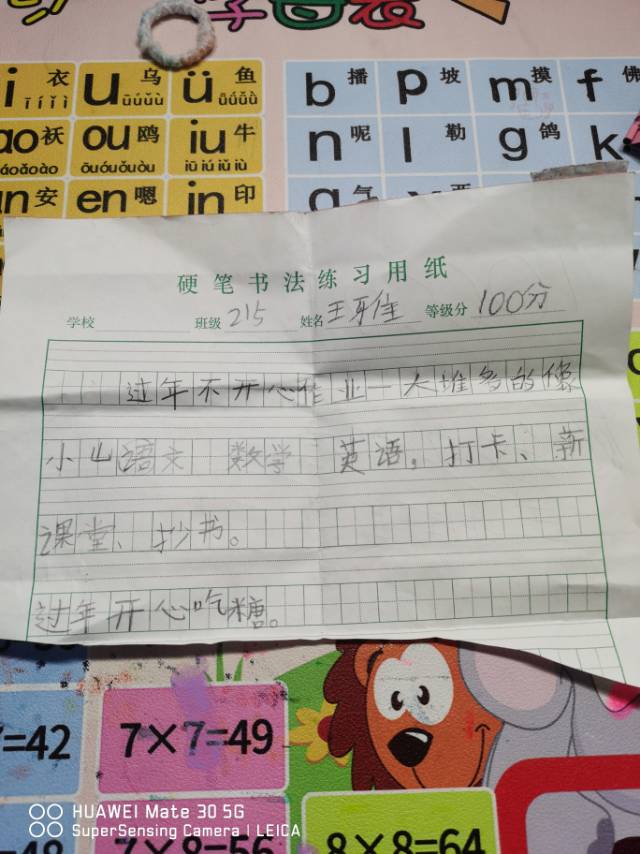 i 衣 u 乌 ü 鱼 b 播 p 坡 m 摸 f 佛
īíǐì ūúǔù ǖǘǚǜ
ao 袄 ou 鸥 iu 牛 n 呢 l 勒 g 鸽 k
āoáoǎoào ōuóuǒuòu iūiúiǔiù
an 安 en 嗯 in 印 气
硬笔书法练习用纸
学校 班级 215 姓名 王牙佳 等级分 100分
过年不开心作业一大堆多的像
小山语文 数学 英语，打卡、新
课堂、抄书。
过年开心吃糖。
=42 7×7=49
HUAWEI Mate 30 5G
SuperSensing Camera | LEICA
=48 7×8=56 8×8=64